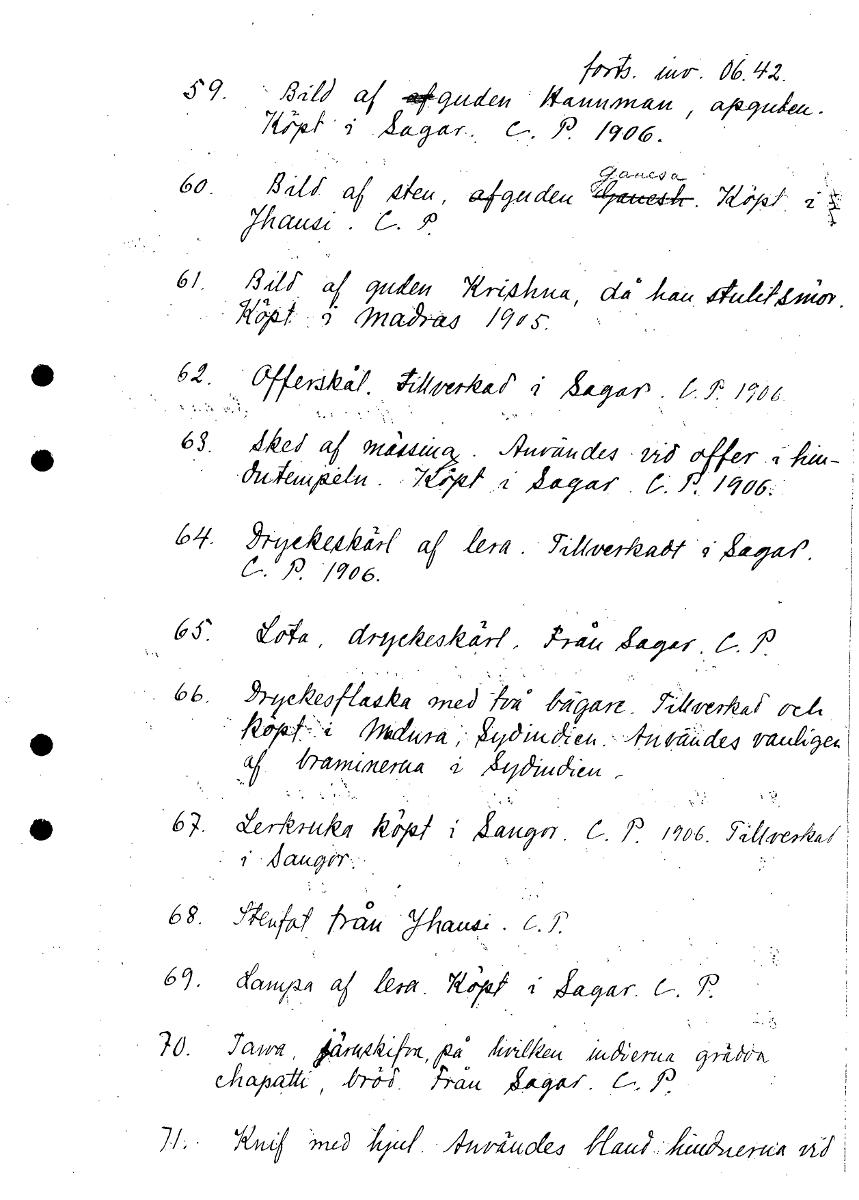 forts. inv. 06.42.
59. Bild af afguden Hannman, apguden.
Köpt i Sagar. C. P. 1906.
Ganesa
60. Bild af sten, afguden Ganesh. Köpt i
Jhansi. C. P.
61. Bild af guden Krishna, då han stulit smör.
Köpt i Madras 1905.
62. Offerskål. Tillverkad i Sagar. C. P. 1906
63. Sked af mässing. Användes vid offer i hin-
dutempeln. Köpt i Sagar. C. P. 1906.
64. Dryckeskärl af lera. Tillverkadt i Sagar.
C. P. 1906.
65. Lota, dryckeskärl. Från Sagar. C. P.
66. Dryckesflaska med två bägare. Tillverkad och
köpt i Madura, Sydindien. Användes vanligen
af braminerna i Sydindien.
67. Lerkruka köpt i Saugor. C. P. 1906. Tillverkad
i Saugor.
68. Stenfat från Jhansi. C. P.
69. Lampa af lera. Köpt i Sagar. C. P.
70. Tawa, järnskifva, på hvilken indierna grädda
chapatti, bröd. Från Sagar. C. P.
71. Knif med hjul. Användes bland hinduerna vid